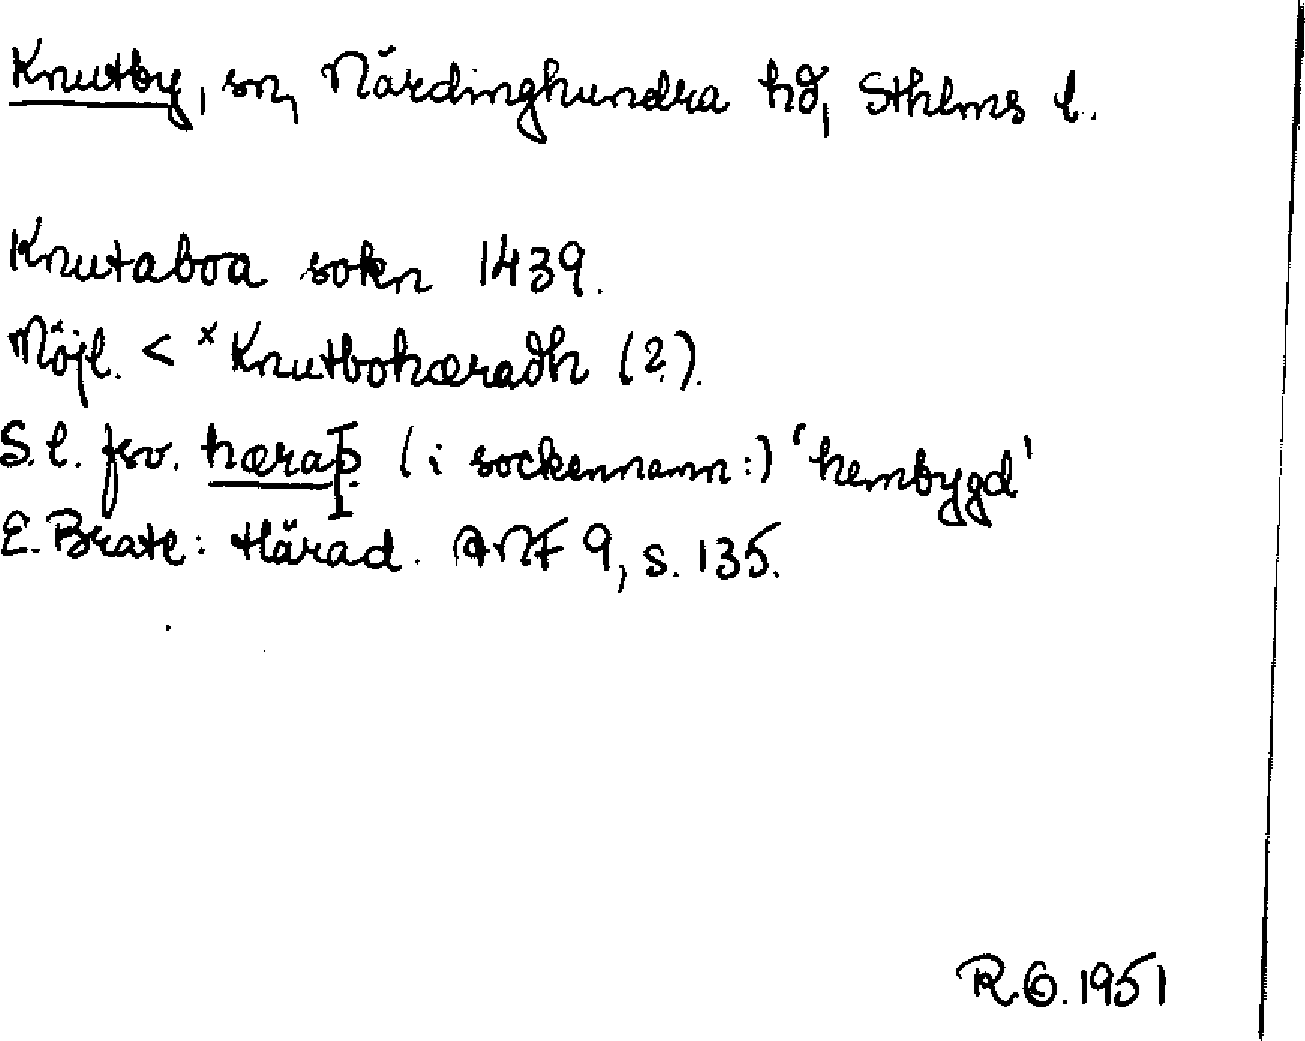 Knutby, sn, Närdinghundra hd, Sthlms l.
Knutaboa sokn 1439.
Möjl. < *Knutbohæradh (?).
S.l. fsv. hæraþ (i sockennamn:) 'hembygd'
E. Brate: Härad. ANF 9, s. 135.
R.O. 1951